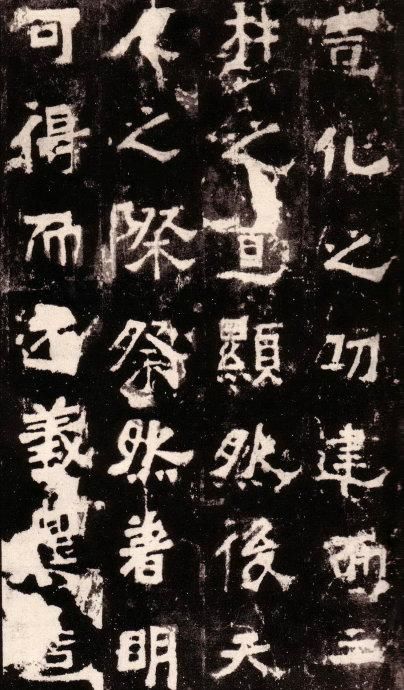 造化之功建而三
柱之道顯然後天
人之際粲然著明
可得而述義農